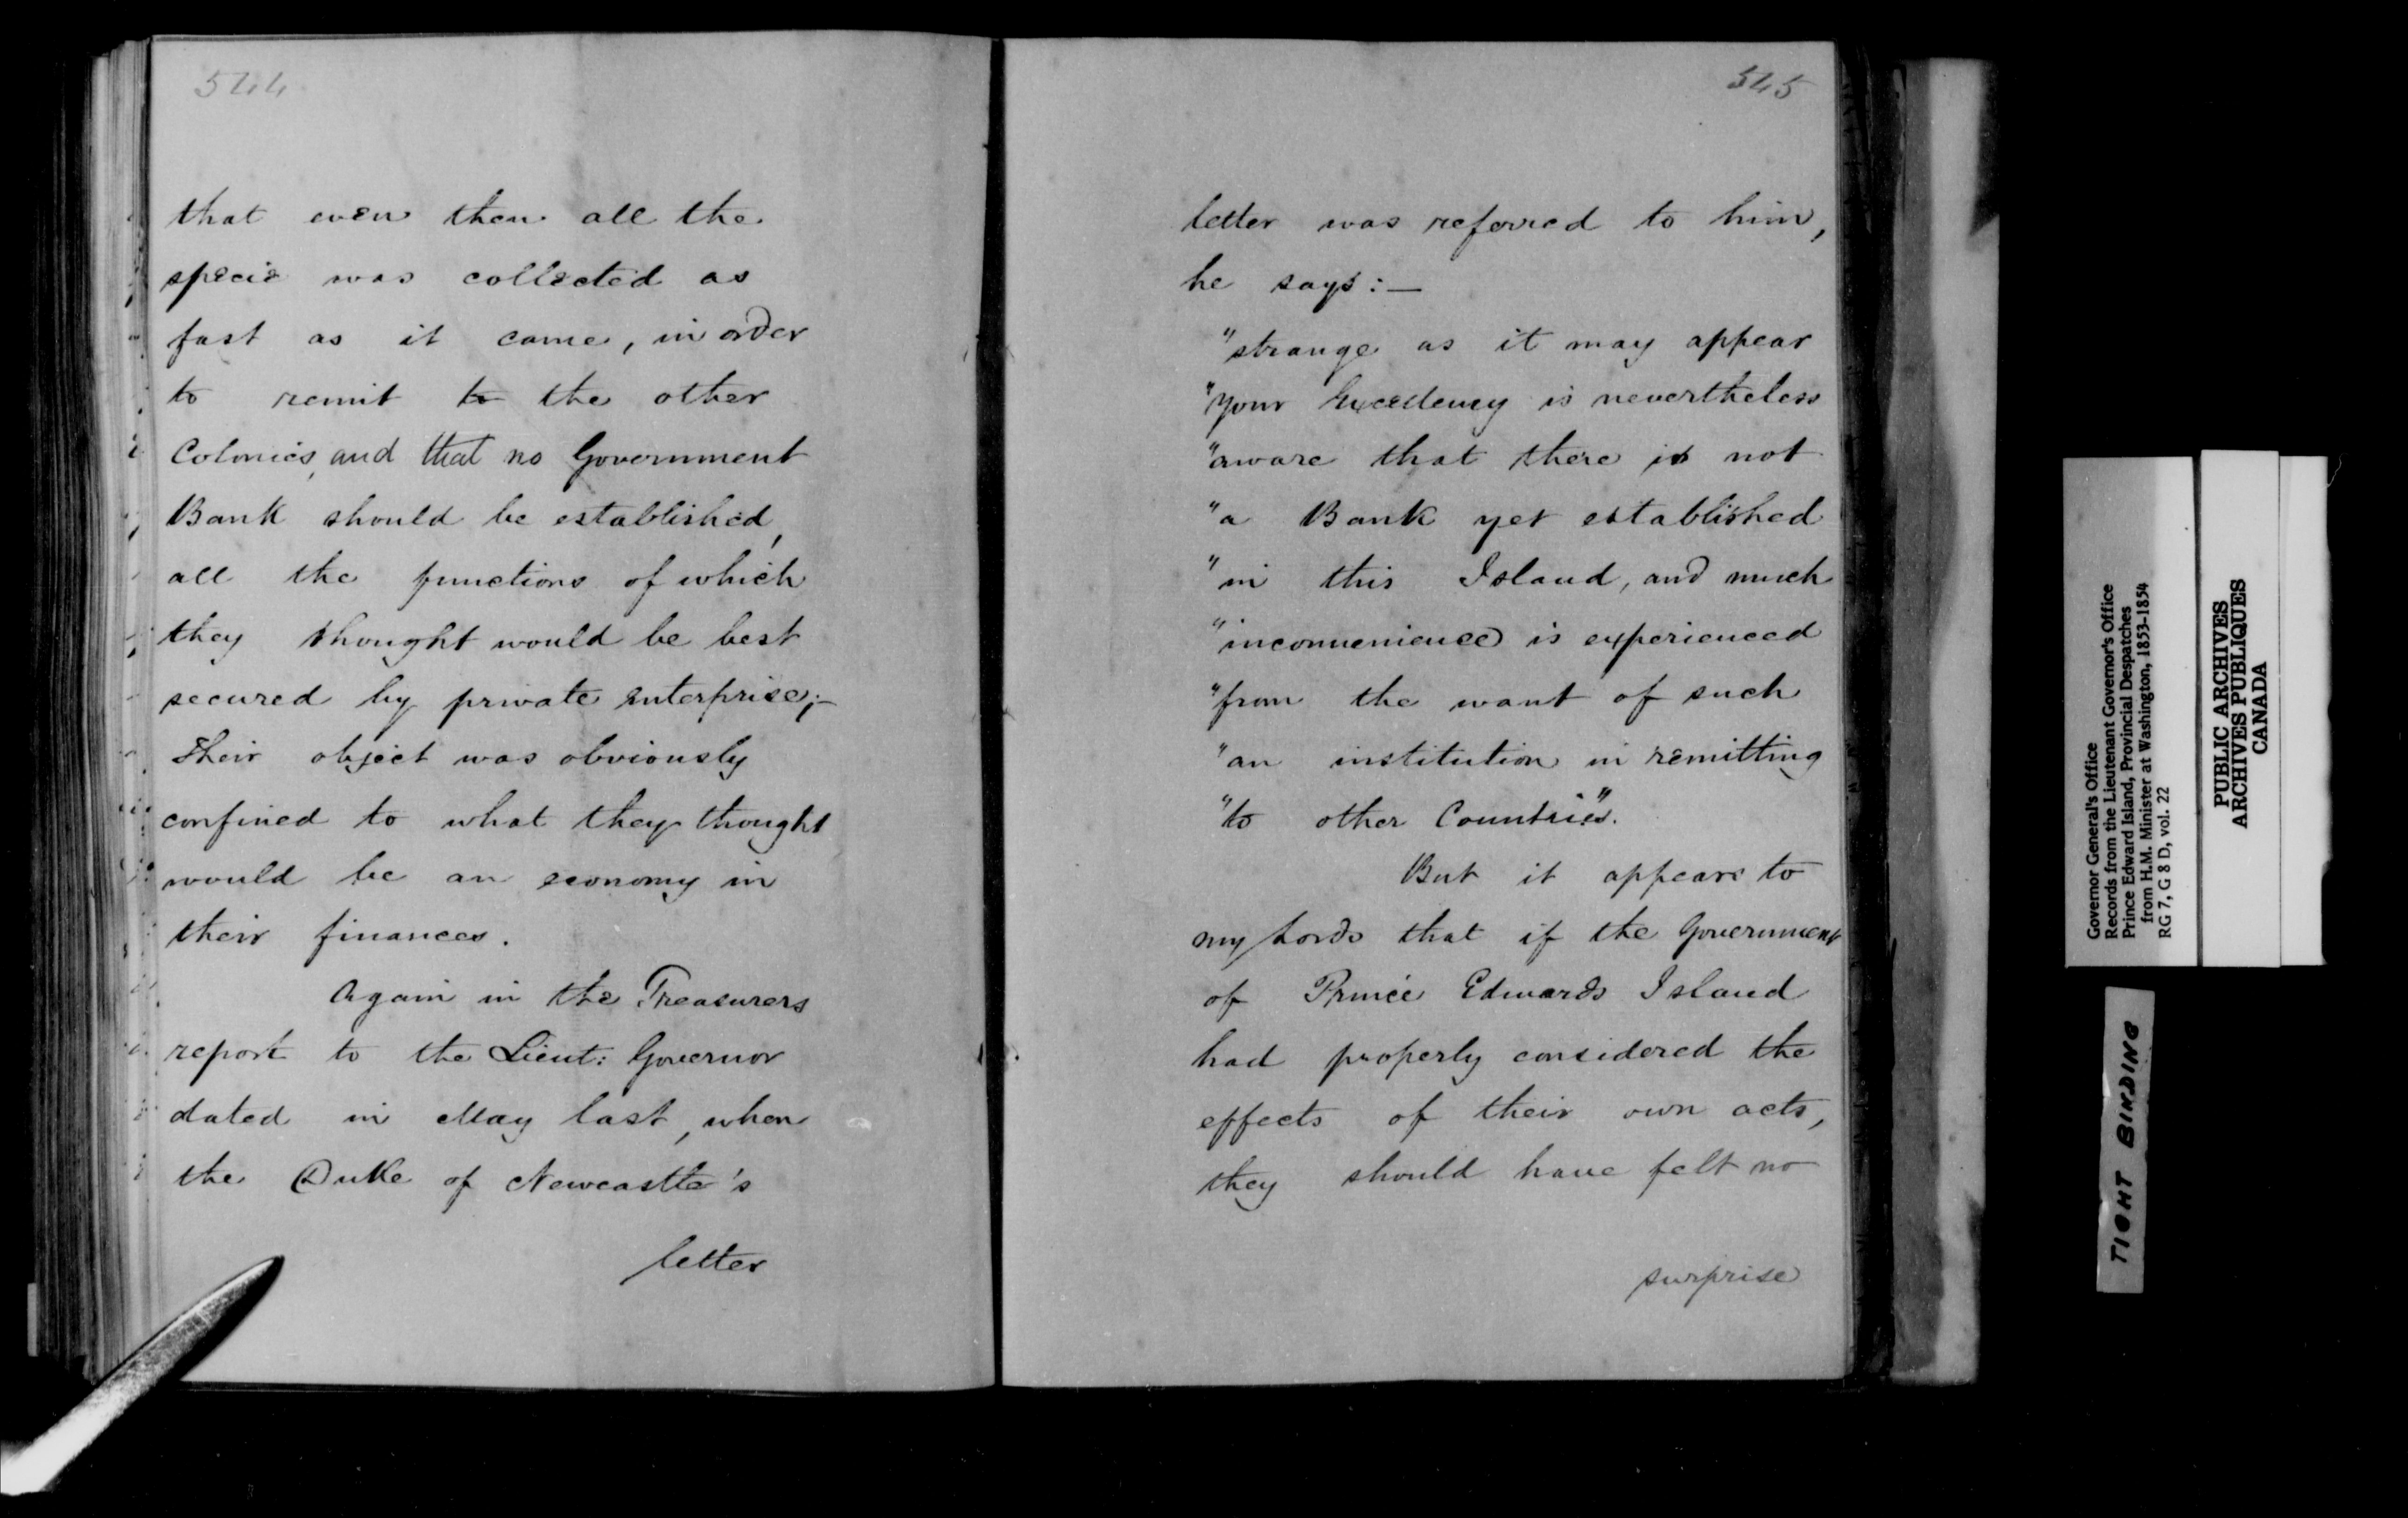 544
that even then all the
specie was collected as
fast as it came, in order
to remit to the other
Colonies, and that no Government
Bank should be established,
all the functions of which
they thought would be best
secured by private enterprise;–
their object was obviously
confined to what they thought
would be an economy in
their finances.
Again in the Treasurers
report to the Lieut: Governor
dated in May last, when
the Duke of Newcastle's
letter
545
letter was referred to him,
he says:—
"strange as it may appear
"your Excellency is nevertheless
"aware that there is not
"a Bank yet established
"in this Island, and much
"inconvenience is experienced
"from the want of such
"an institution in remitting
"to other Countries".
But it appears to
my Lords that if the Government
of Prince Edwards Island
had properly considered the
effects of their own acts,
they should have felt no
surprise
Governor General's Office
Records from the Lieutenant Governor's Office
Prince Edward Island, Provincial Despatches
from H.M. Minister at Washington, 1853-1854
RG 7, G 8 D, vol. 22
PUBLIC ARCHIVES
ARCHIVES PUBLIQUES
CANADA
TIGHT BINDING